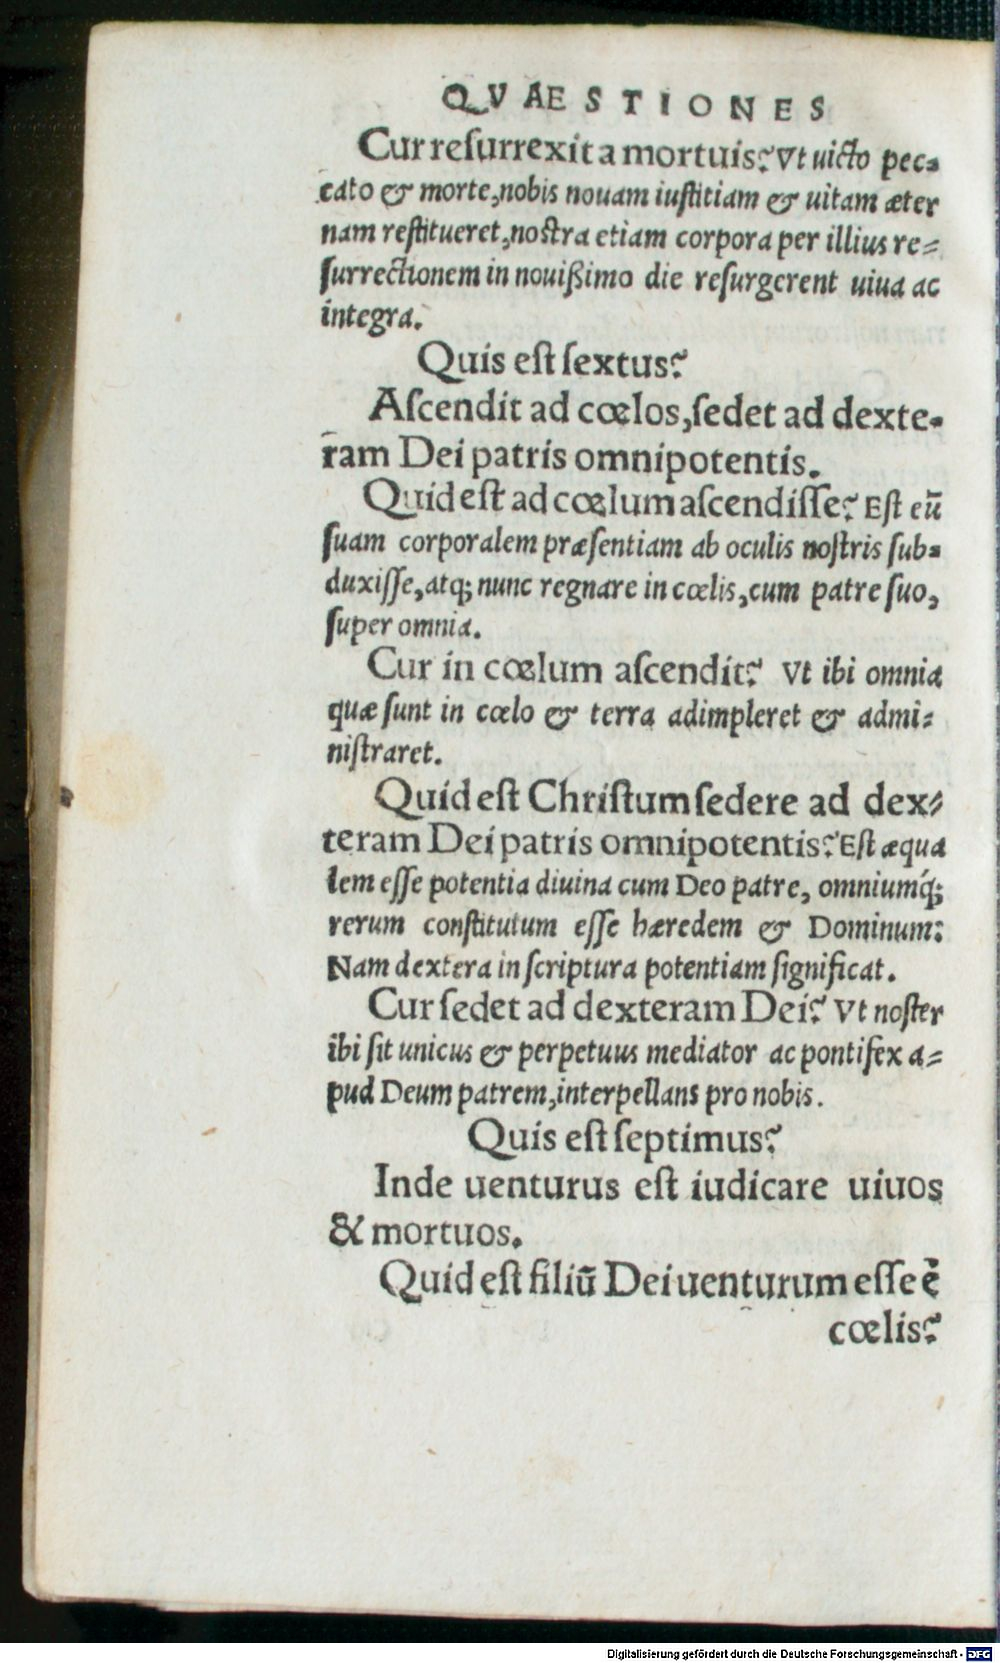 QVAESTIONES
Cur reſurrexit a mortuis? Vt uicto pec-
cato & morte, nobis nouam iuſtitiam & uitam æter
nam reſtitueret, noſtra etiam corpora per illius re-
ſurrectionem in nouißimo die reſurgerent uiua ac
integra.
Quis eſt ſextus?
Aſcendit ad cœlos, ſedet ad dexte-
ram Dei patris omnipotentis.
Quid eſt ad cœlum aſcendiſſe? Eſt eū
ſuam corporalem præſentiam ab oculis noſtris ſub-
duxiſſe, atq; nunc regnare in cœlis, cum patre ſuo,
ſuper omnia.
Cur in cœlum aſcendit? Vt ibi omnia
quæ ſunt in cœlo & terra adimpleret & admi-
niſtraret.
Quid eſt Chriſtum ſedere ad dex-
teram Dei patris omnipotentis? Eſt æqua
lem eſſe potentia diuina cum Deo patre, omniumq́;
rerum conſtitutum eſſe hæredem & Dominum:
Nam dextera in ſcriptura potentiam ſignificat.
Cur ſedet ad dexteram Dei? Vt noſter
ibi ſit unicus & perpetuus mediator ac pontifex a-
pud Deum patrem, interpellans pro nobis.
Quis eſt ſeptimus?
Inde uenturus eſt iudicare uiuos
& mortuos.
Quid eſt filiū Dei uenturum eſſe ē
cœlis?
Digitalisierung gefördert durch die Deutsche Forschungsgemeinschaft - DFG